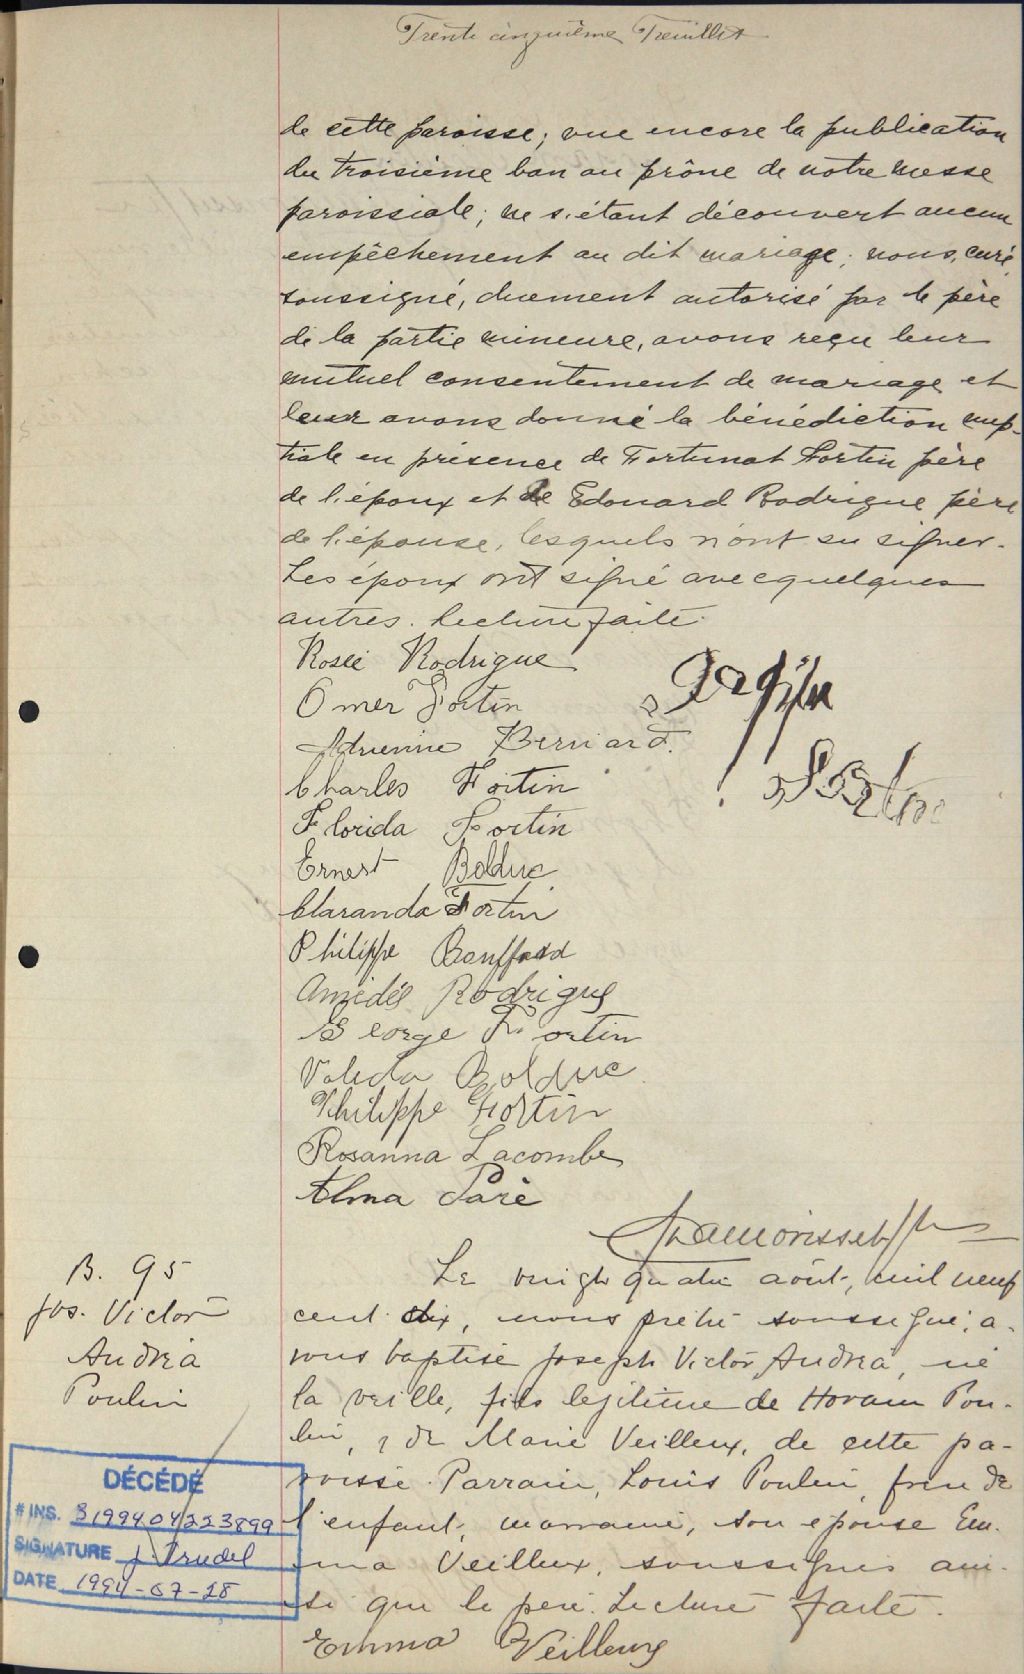 Trente cinquième Feuillet
de cette paroisse; vue encore la publication
du troisième ban au prône de notre messe
paroissiale; ne s'étant découvert aucun
empêchement au dit mariage; nous, curé
soussigné, duement autorisé par le père
de la partie mineure, avons reçu leur
mutuel consentement de mariage et
leur avons donné la bénédiction nup-
tiale en présence de Fortunat Fortin père
de l'époux et de Edouard Rodrigue père
de l'épouse, lesquels n'ont su signer.
Les époux ont signé avec quelques
autres. Lecture faite.
Rosée Rodrigue
Omer Fortin
Adrienne Bernard.
Charles Fortin
Florida Fortin
Ernest Bolduc
Claranda Fortin
Philippe
Amédée Rodrigue
George Fortin
Valeda Bolduc
Philippe Fortin
Rosanna Lacombe
Alma Paré
B. 95
Jos. Victor
Andréa
Poulin
Le vingt quatre août, mil neuf
cent dix, nous prêtre soussigné, a-
vons baptisé Joseph Victor Andréa, né
la veille, fils légitime de Pou-
lin, & de Marie Veilleux, de cette pa-
roisse. Parrain, Louis Poulin, frère de
l'enfant; marraine, son épouse Em-
ma Veilleux, soussignés ain-
si que le père. Lecture faite.
Emma Veilleux
DÉCÉDÉ
# INS. 3199404223899
SIGNATURE J. Trudel
DATE 1994-07-28